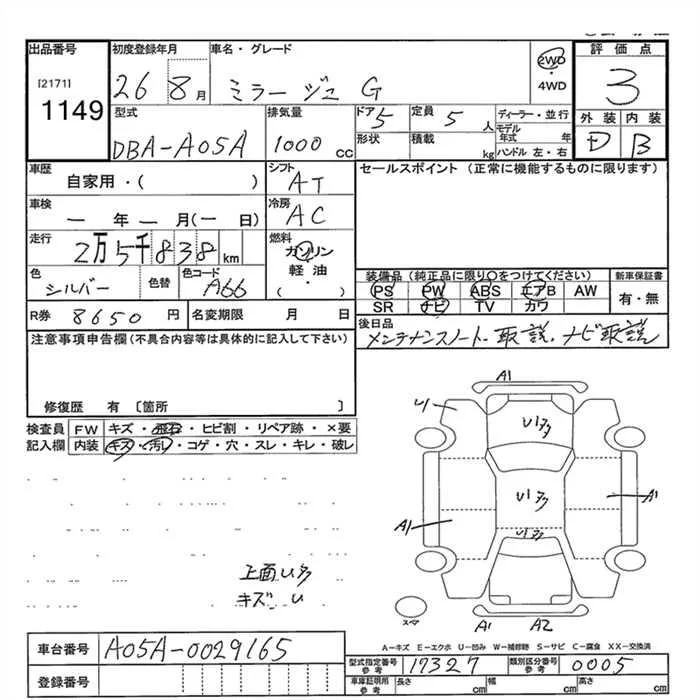 出品番号 初度登録年月 車名・グレード 評価点
[2171] 26 8月 ミラージュ G 2WD 3
1149 4WD
型式 排気量 ドア 5 定員 5人 ディーラー・並行 外装 内装
DBA-A05A 1000 cc 形状 積載 kg モデル年式 年 D B
ハンドル 左・右
車歴 シフト セールスポイント (正常に機能するものに限ります)
自家用・( ) AT
車検 冷房
ー年ー月(ー日) AC
走行 燃料
2万5千838km ガソリン
軽・油
( )
色 色替 色コード 装備品 (純正品に限り○をつけてください) 新車保証書
シルバー A66 PS PW ABS エアB AW 有・無
SR ナビ TV カワ
R券 8650円 名変期限 月 日 後日品
メンテナンスノート、取説、ナビ取説
注意事項申告欄(不具合内容等は具体的に記入して下さい)
修復歴 有 〔箇所 〕
検査員 FW キズ・飛石・ヒビ割・リペア跡・×要
記入欄 内装 キズ・汚レ・コゲ・穴・スレ・キレ・破レ
A1
U13タ
U13タ
A1
A1
U13タ
上面U多
キズ U
スマ
A1 A2
A-キズ E-エクボ U-凹み W-補修跡 S-サビ C-腐食 XX-交換済
車台番号 A05A-0029165
型式指定番号 参考 17327 類別区分番号 参考 0005
登録番号 車庫証明用 参考 長さ cm 幅 cm 高さ cm